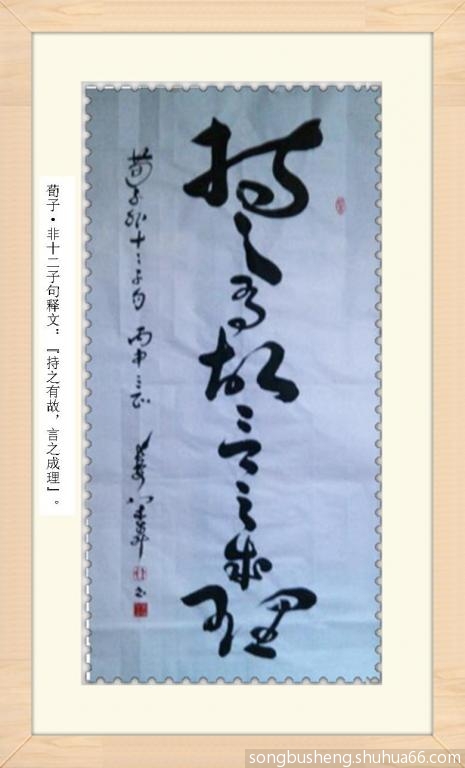 持之有故言之成理
荀子非十二子句 丙申
荀子·非十二子句释文：『持之有故，言之成理』。
songbusheng.shuhua66.com